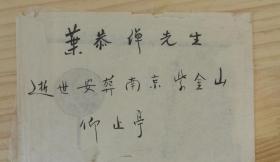 葉恭綽先生
逝世安葬南京紫金山
仰止亭